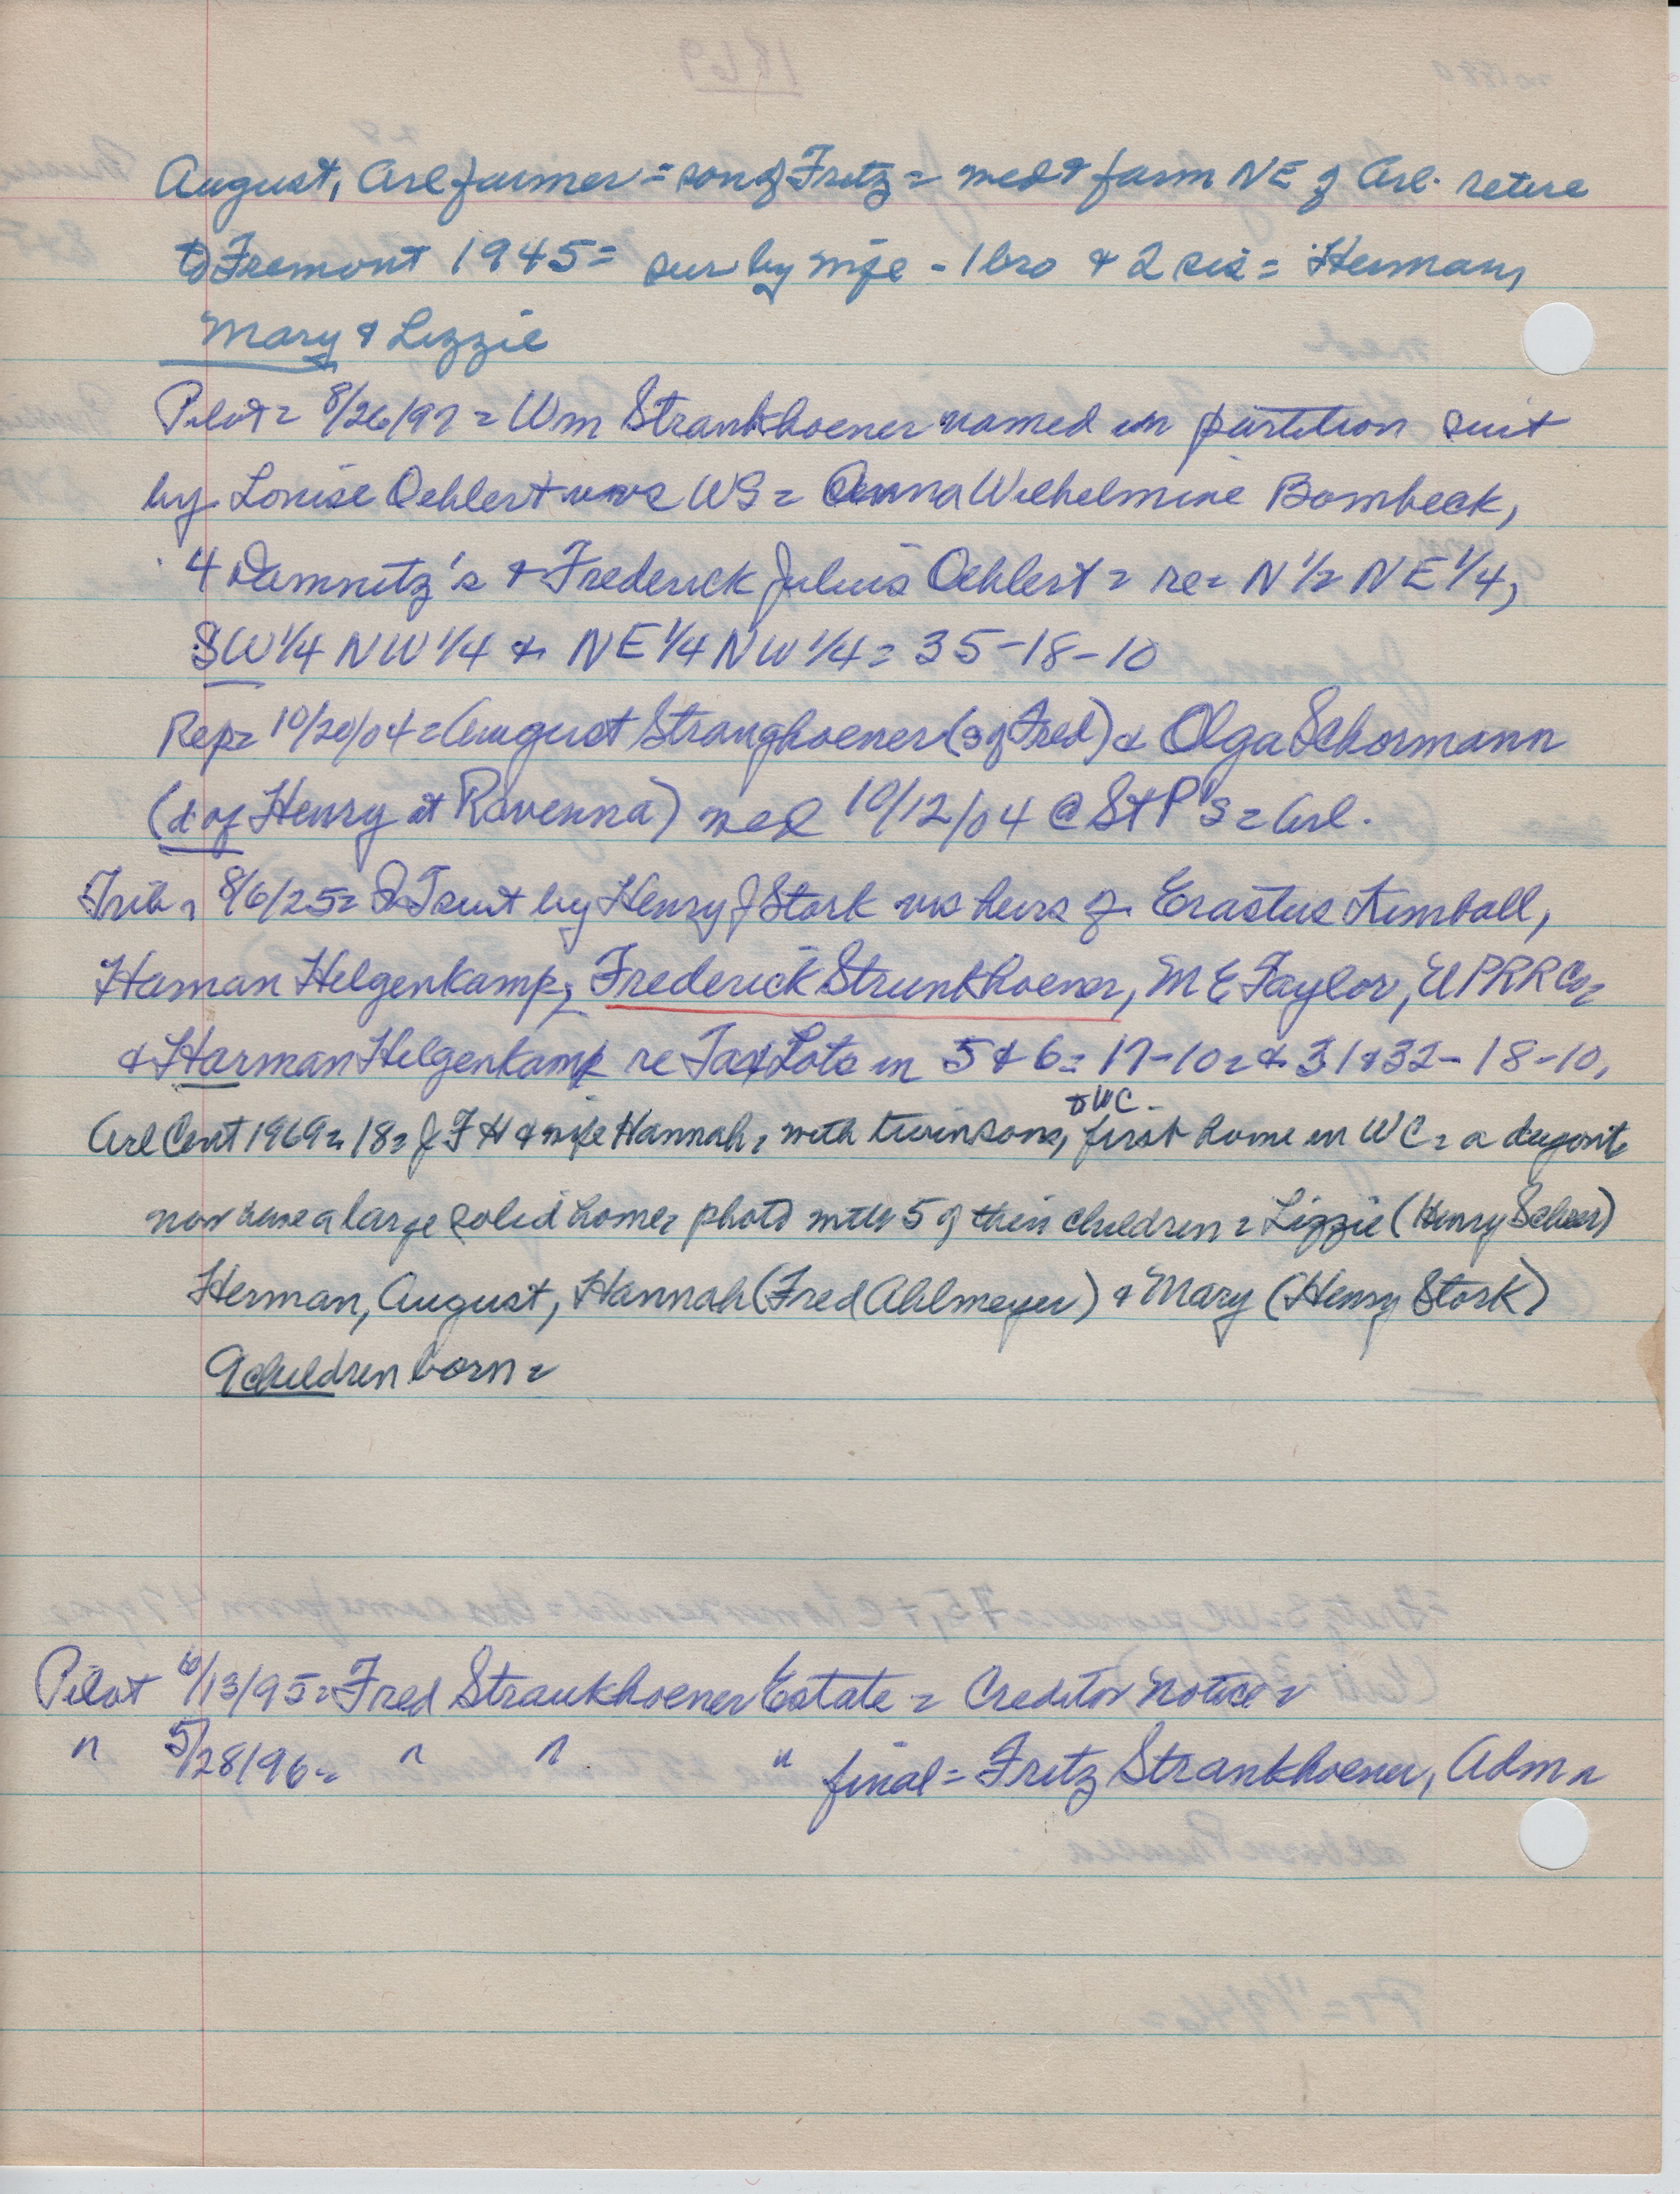 August, Arl farmer = son of Fritz = med & farm NE of Arl. retire
to Fremont 1945 = sur by wife - 1 bro & 2 sis = Herman,
Mary & Lizzie
Pilot = 8/26/97 = Wm Strankhoener named in partition suit
by Louise Oehlert vs WS = Anna Wilhelmine Bombeck,
4 Damnitz's & Frederick Julius Oehlert = re = N 1/2 NE 1/4,
SW 1/4 NW 1/4 & NE 1/4 NW 1/4 = 35-18-10
Rep = 10/20/04 = August Stranghoener (s of Fred) & Olga Schormann
(d of Henry at Ravenna) med 10/12/04 @ St P's = Arl.
Trib = 8/6/25 = QT suit by Henry J Stork vs heirs of Erastus Kimball,
Haman Helgenkamp, Frederick Strunkhoener, M E Taylor, UPRR Co =
& Harman Helgenkamp re Tax Lots in 5 & 6 = 17-10 = & 31 & 32 - 18-10,
to WC -
Arl Cent 1969 = 18 = J F H & wife Hannah, with twin sons, first home in WC = a dugout,
now have a large solid home = photo with 5 of their children = Lizzie (Henry Scheer)
Herman, August, Hannah (Fred Ahlmeyer) & Mary (Henry Stork)
9 children born =
Pilot 6/13/95 = Fred Straukhoener Estate = Creditor notice =
" 5/28/96 = " " " final = Fritz Strankhoener, Adm =